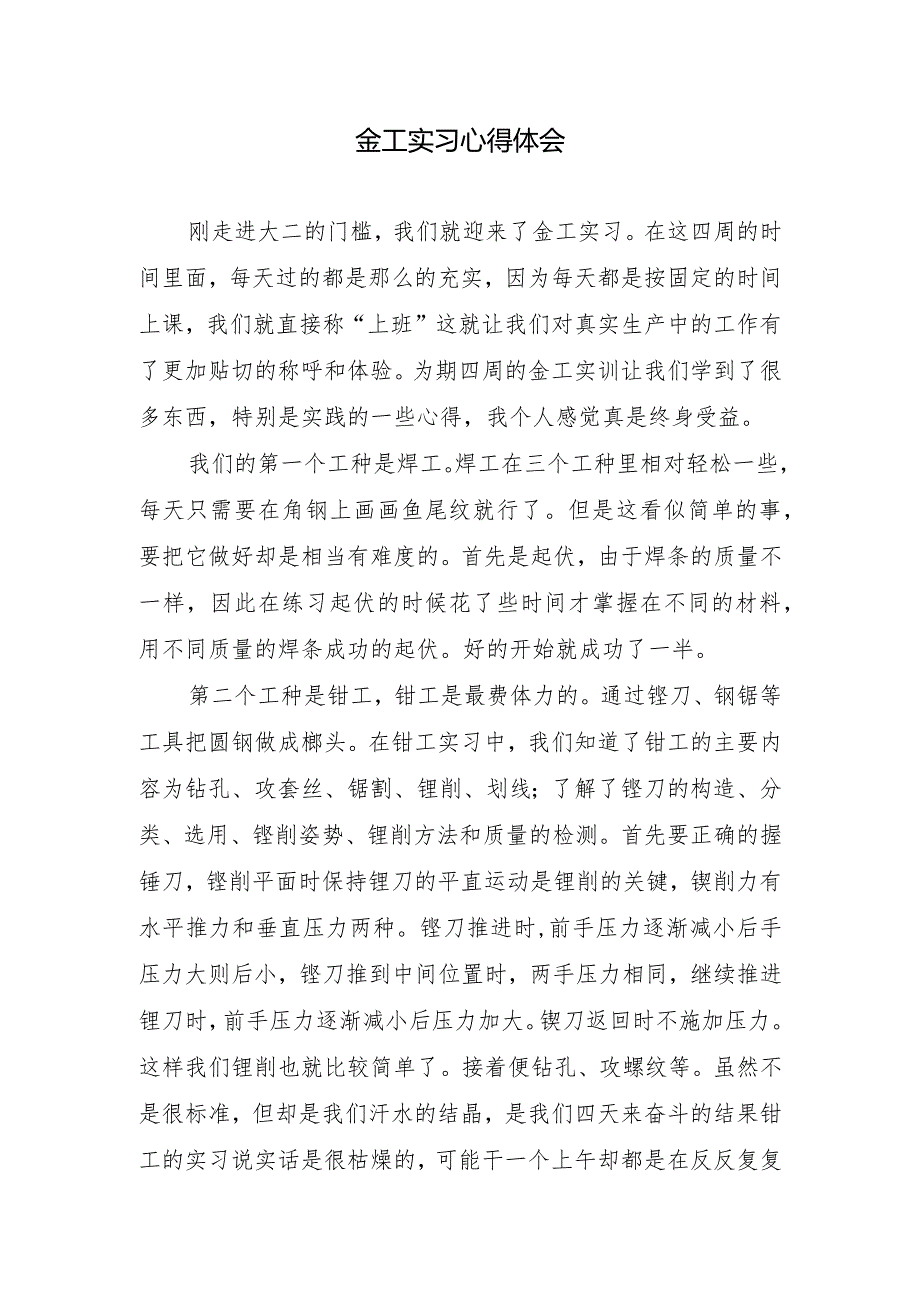 金工实习心得体会
刚走进大二的门槛，我们就迎来了金工实习。在这四周的时
间里面，每天过的都是那么的充实，因为每天都是按固定的时间
上课，我们就直接称“上班”这就让我们对真实生产中的工作有
了更加贴切的称呼和体验。为期四周的金工实训让我们学到了很
多东西，特别是实践的一些心得，我个人感觉真是终身受益。
我们的第一个工种是焊工。焊工在三个工种里相对轻松一些，
每天只需要在角钢上画画鱼尾纹就行了。但是这看似简单的事，
要把它做好却是相当有难度的。首先是起伏，由于焊条的质量不
一样，因此在练习起伏的时候花了些时间才掌握在不同的材料，
用不同质量的焊条成功的起伏。好的开始就成功了一半。
第二个工种是钳工，钳工是最费体力的。通过铿刀、钢锯等
工具把圆钢做成榔头。在钳工实习中，我们知道了钳工的主要内
容为钻孔、攻套丝、锯割、锂削、划线；了解了铿刀的构造、分
类、选用、铿削姿势、锂削方法和质量的检测。首先要正确的握
锤刀，铿削平面时保持锂刀的平直运动是锂削的关键，锲削力有
水平推力和垂直压力两种。铿刀推进时,前手压力逐渐减小后手
压力大则后小，铿刀推到中间位置时，两手压力相同，继续推进
锂刀时，前手压力逐渐减小后压力加大。锲刀返回时不施加压力。
这样我们锂削也就比较简单了。接着便钻孔、攻螺纹等。虽然不
是很标准，但却是我们汗水的结晶，是我们四天来奋斗的结果钳
工的实习说实话是很枯燥的，可能干一个上午却都是在反反复复